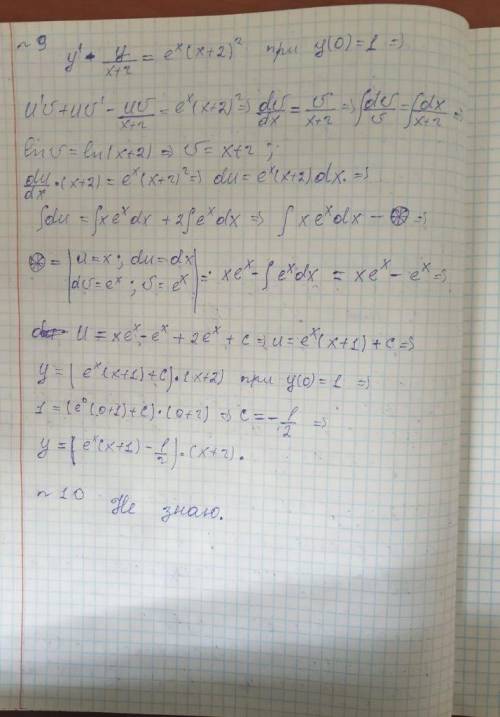 № 9
y' - y/(x+2) = eˣ(x+2)² при y(0)=1 =>
u'v + uv' - uv/(x+2) = eˣ(x+2)² => dv/dx = v/(x+2) => ∫dv/v = ∫dx/(x+2) =>
ln v = ln(x+2) => v = x+2 ;
du/dx · (x+2) = eˣ(x+2)² => du = eˣ(x+2)dx. =>
∫du = ∫xeˣdx + 2∫eˣdx => ∫xeˣdx - ⊛ =>
⊛ = | u=x ; du=dx
dv=eˣ ; v=eˣ | = xeˣ - ∫eˣdx = xeˣ - eˣ =>
u = xeˣ - eˣ + 2eˣ + c => u = eˣ(x+1) + c =>
y = (eˣ(x+1)+c)·(x+2) при y(0)=1 =>
1 = (e⁰(0+1)+c)·(0+2) => c = -1/2 =>
y = (eˣ(x+1) - 1/2)·(x+2).
№ 10 Не знаю.